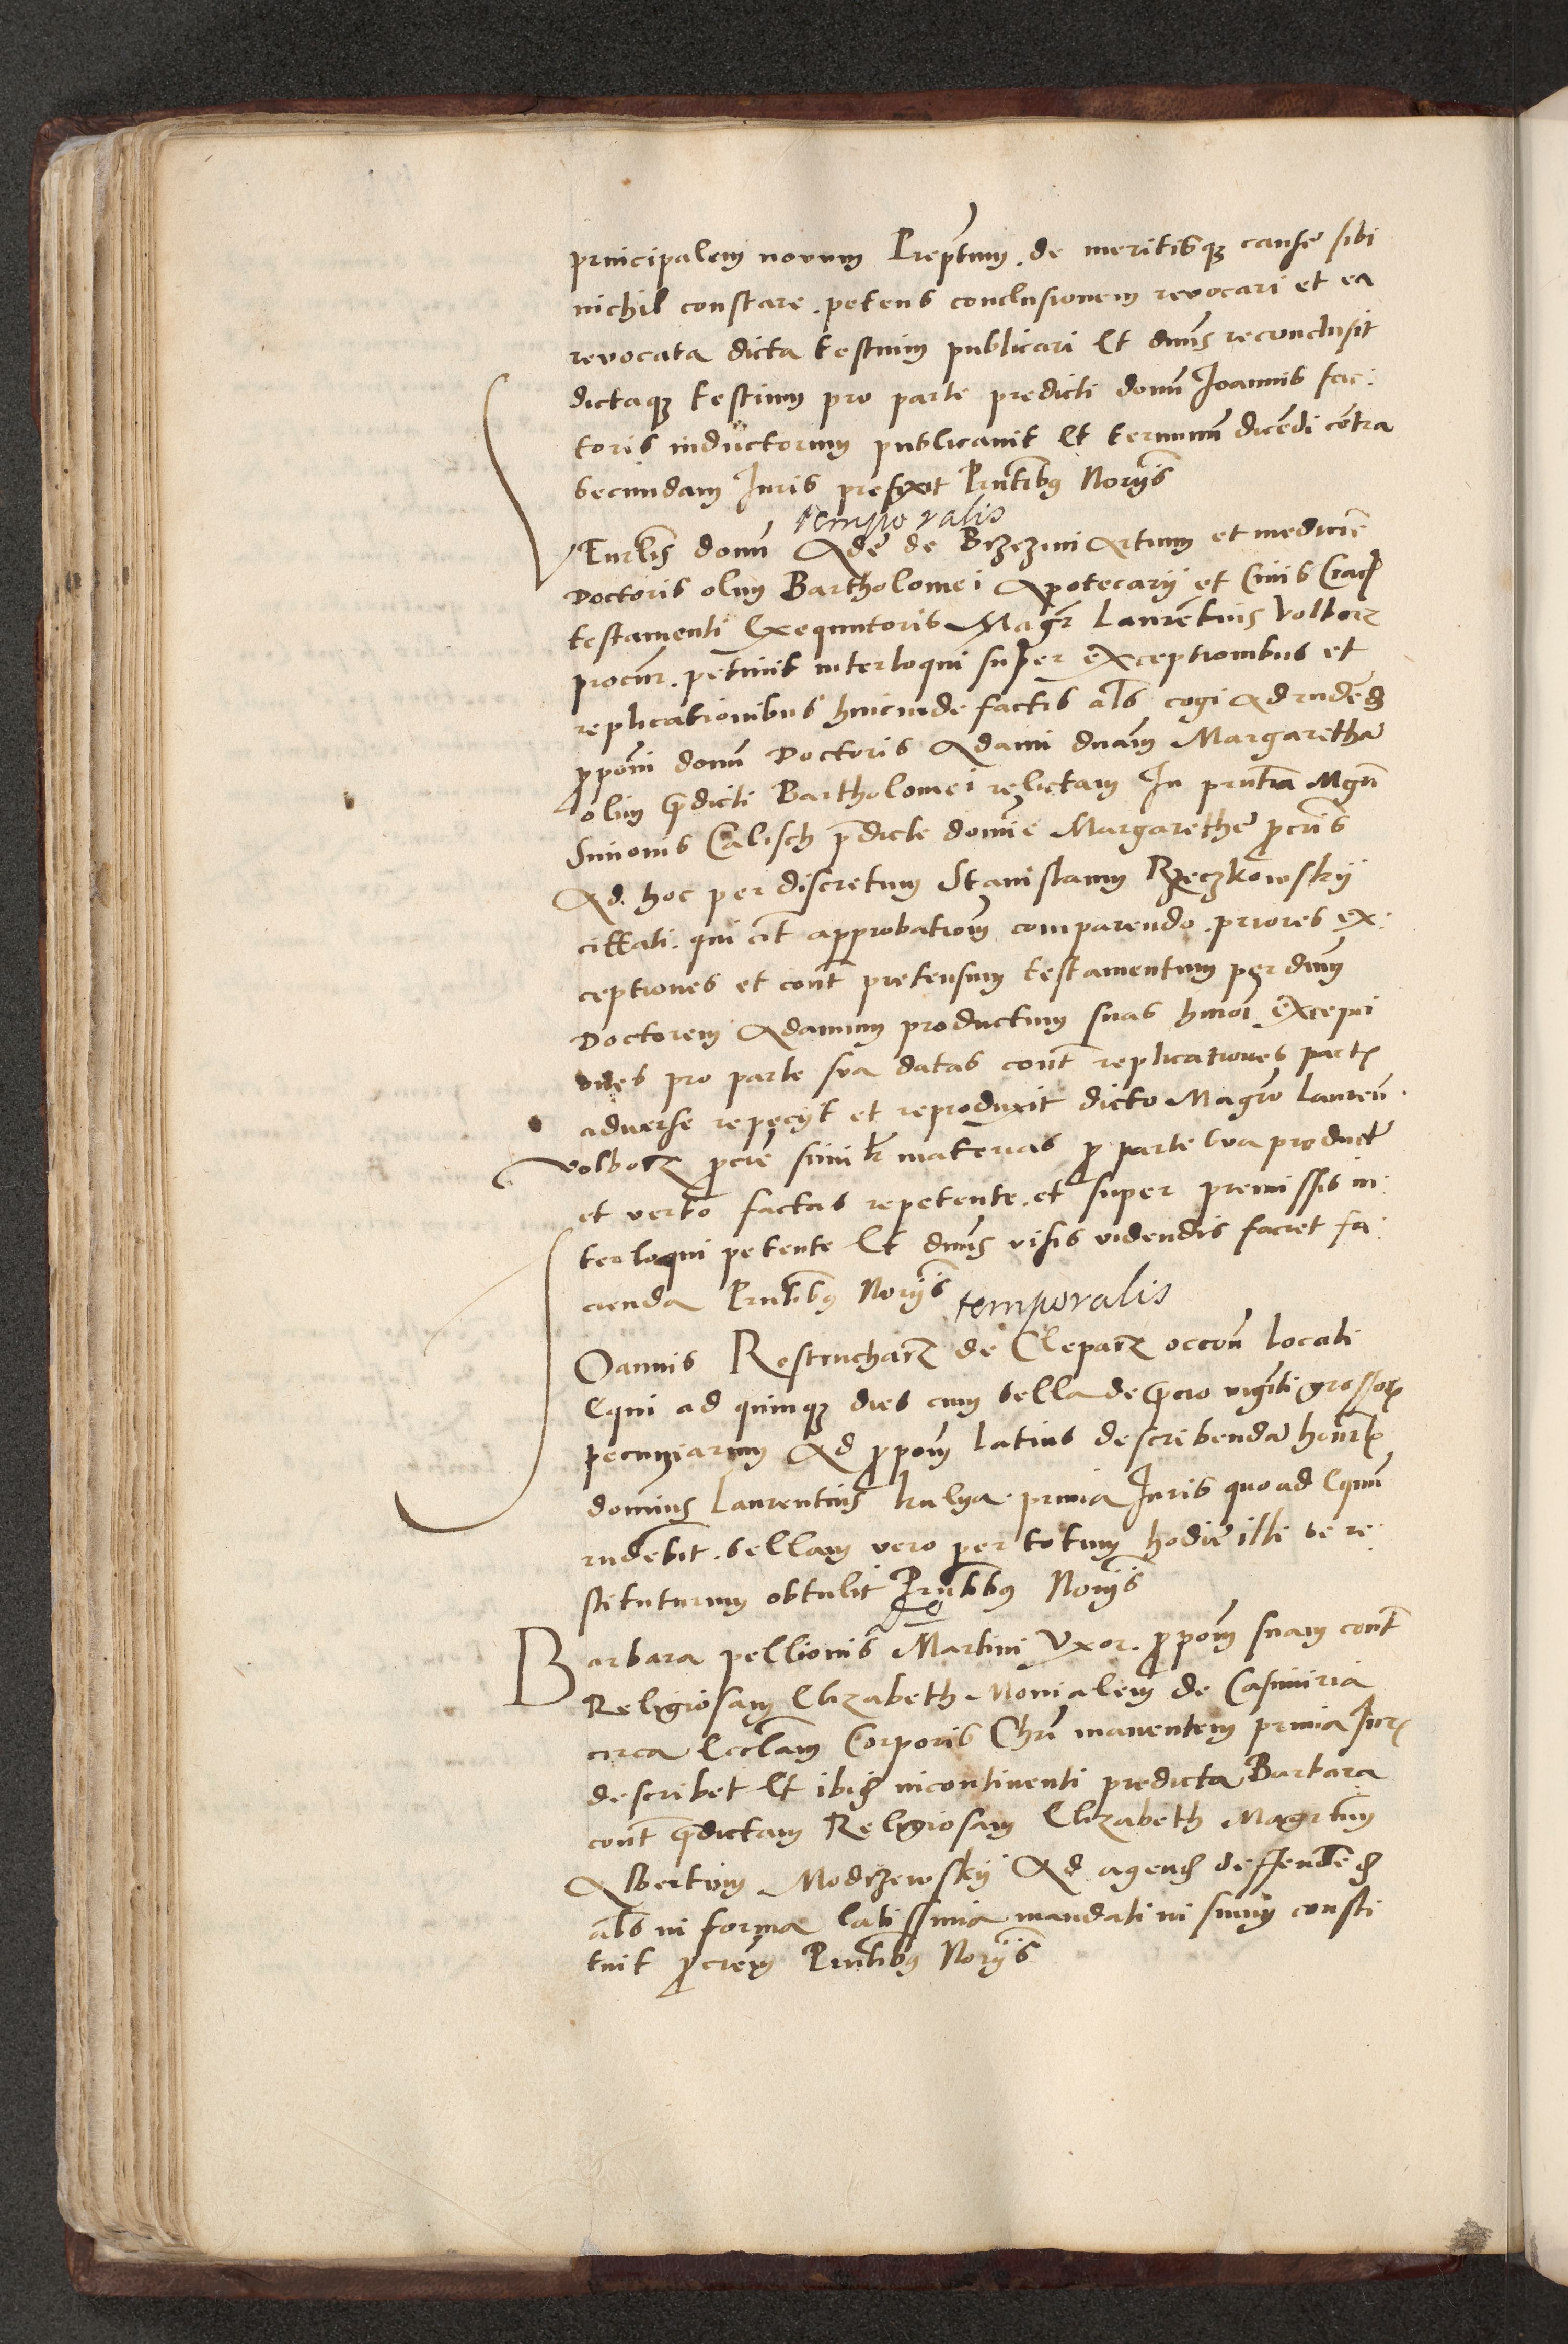 principalem novum Preptum. de meritisq3 cause sibi
nichil constare. petens conclusionem revocari et ea
revocata dicta testium publicari Et dnus reconclusit
dictaq3 testium pro parte predicti domi Joannis fac:
toris inductorum publicavit Et terminum dicendi contra
secundam Juris prefixit Prntibus Norijs
temporalis
domi Ade de Brzezini Artium et medicine
Doctoris olim Bartholomei Apotecarij et Civis Crac
testamenti Exequutoris Magr Laurentius Volborz
procur. petiuit interloqui super exceptionibus et
replicationibus hincinde factis als cogi ad rnden
pponi domi Doctoris Adami dnam Margaretha
olim pdicti Bartholomei relictam In prntia Mgri
Simonis Calisch pdicte domine Margarethe pcris
Ad hoc per discretum Stanislaum Rzeczkowskij
cittati. qui cit approbationem comparendo. priores ex:
ceptiones et cont pretensum testamentum per dnum
Doctorem Adamum productum suas hmoi excepti
ones pro parte sua datas cont replicationes part
adverse repecijt et reproduxit dicto Magro Lauren
volborz pcre similr materias p parte sua producte
et verbo factas repetente. et super premissis in:
terloqui petente Et dnus visis videndis faciet fa:
cienda Prntibus Norijs temporalis
Oannis Rostrucharz de Cleparz occon locati
Equi ad quinq3 dies cum sella de precio viginti grossor
pecuniarum Ad ppom latius describenda honr
dominus Laurentius kulya. prima Juris quo ad Equm
rndebit. sellam vero per totum hodie illi se re:
stituturum obtulit Prntibus Norijs
Barbara pellionis Martini Vxor. ppom suam cont
Religiosam Elizabeth Monialem de Casimiria
circa Eccliam Corporis Chri manentem prima Jur
describet Et ibid incontinenti predicta Barbara
cont pdictam Religiosam Elizabeth Magrum
Albertum Modrzewskij Ad agend deffendend
als in forma latissima mandati in simi consti
tuit pcrem Prntibus Norijs